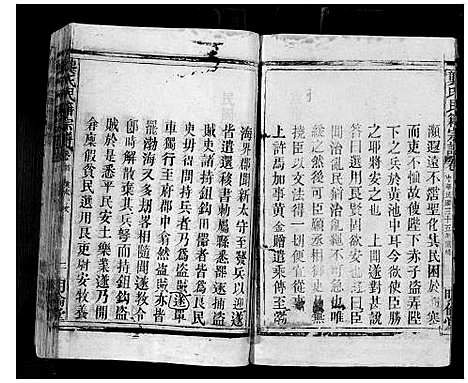 瀕遐遠不霑聖化其民困於飢寒
而吏不恤故使陛下赤子盜弄陛
下之兵於潢池中耳今欲使臣勝
之耶將安之也 上聞遂對甚說
答曰選用賢良固欲安之也遂曰臣
聞治亂民猶治亂繩不可急也
臣以文法得一切便宜從事
上許焉加賜黃金贈遣乘傳至渤
海界郡聞新太守至發兵以迎遂
皆遣還移書勑屬縣悉罷逐捕盜
賊吏諸持鉏鈎田器者皆為良民
吏毋得問持兵者乃為盜賊遂單
車獨行至府郡中翕然盜賊亦皆
罷渤海又多劫畧相隨聞遂教令
即時解散棄其兵弩而持鉏鈎盜
賊於是悉平民安土樂業遂乃開
倉廩假貧民選用良吏尉安牧養